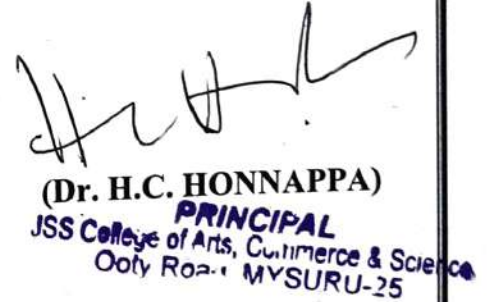 (Dr. H.C. HONNAPPA)
PRINCIPAL
JSS College of Arts, Commerce & Science
Ooty Road MYSURU-25